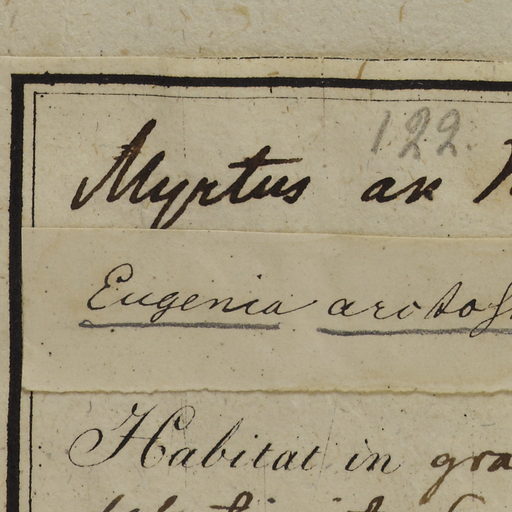 122.
Myrtus an
Eugenia
Habitat in gra